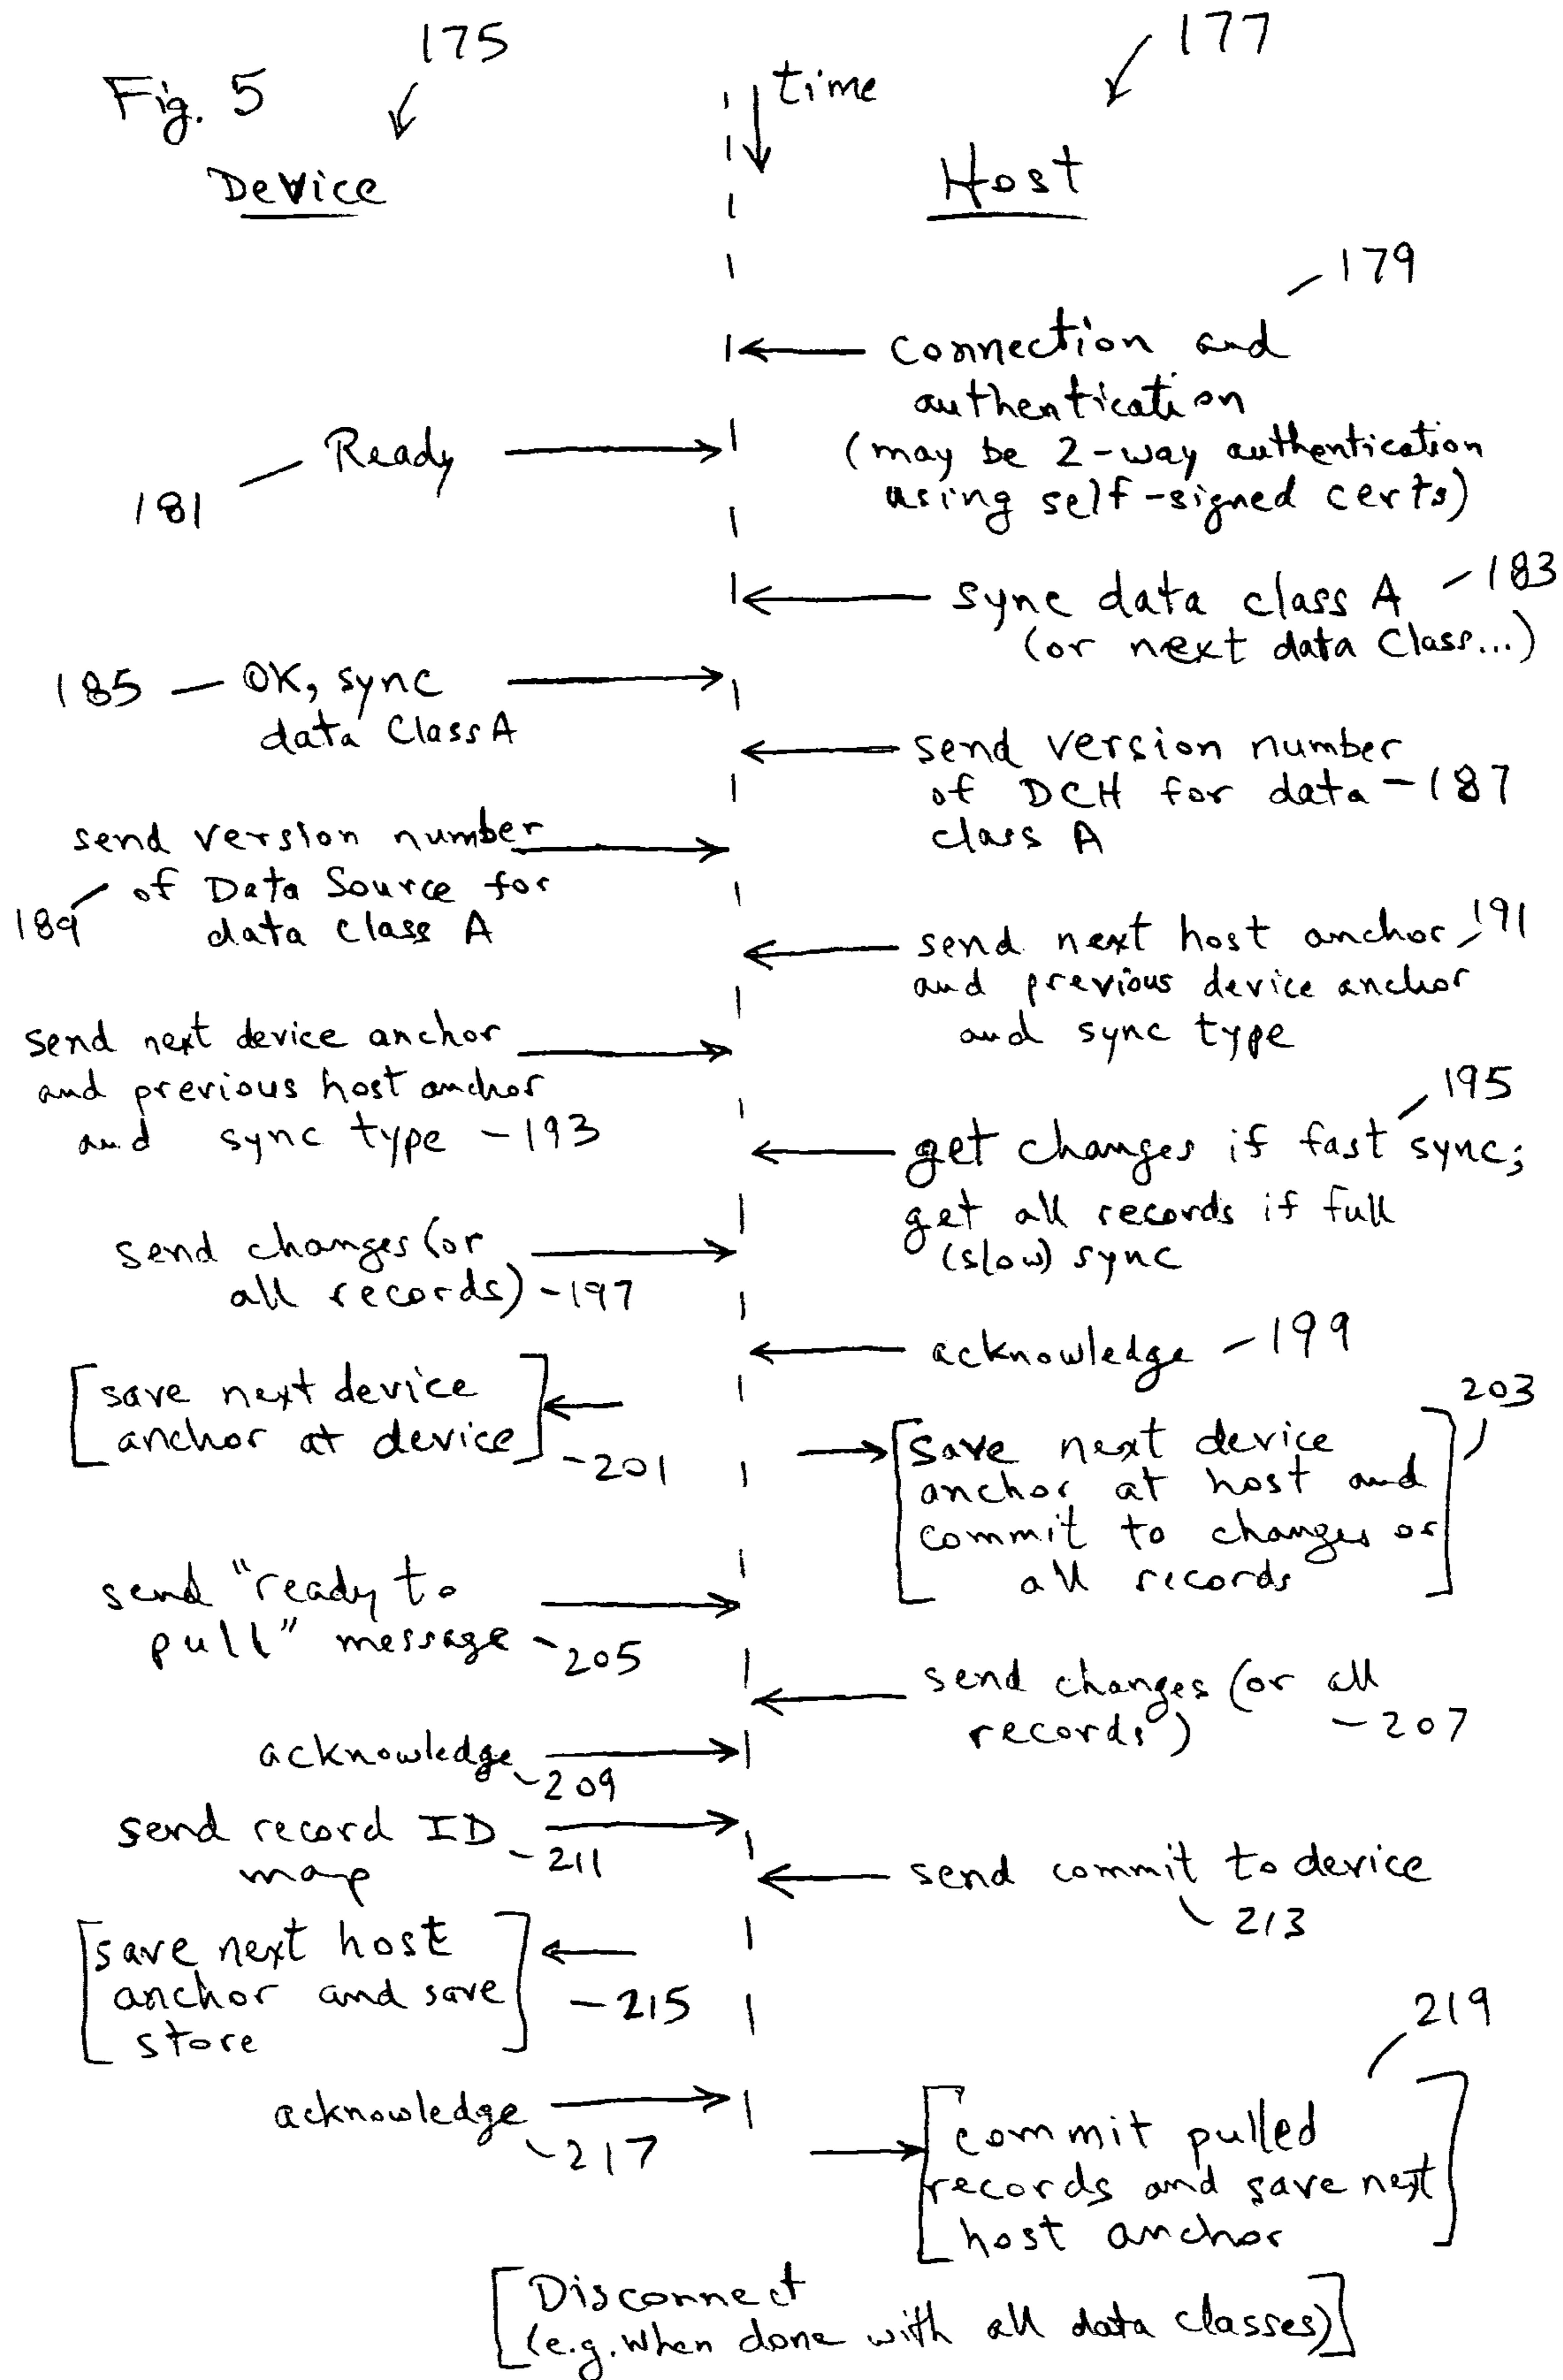 Fig. 5
175
Device
time
177
Host
179
connection and
authentication
(may be 2-way authentication
using self-signed certs)
Ready
181
sync data class A - 183
(or next data Class...)
185 - OK, sync
data Class A
send version number
of DCH for data - 187
class A
send version number
of Data Source for
189
data class A
send next host anchor 191
and previous device anchor
and sync type
send next device anchor
and previous host anchor
and sync type - 193
195
get changes if fast sync;
get all records if full
(slow) sync
send changes (or
all records) - 197
acknowledge - 199
[save next device
anchor at device]
- 201
203
[Save next device
anchor at host and
commit to changes or
all records]
send "ready to
pull" message - 205
send changes (or all
records) - 207
acknowledge - 209
send record ID
map - 211
send commit to device
213
[save next host
anchor and save
store]
- 215
acknowledge - 217
219
[commit pulled
records and save next
host anchor]
[Disconnect
(e.g. when done with all data classes)]